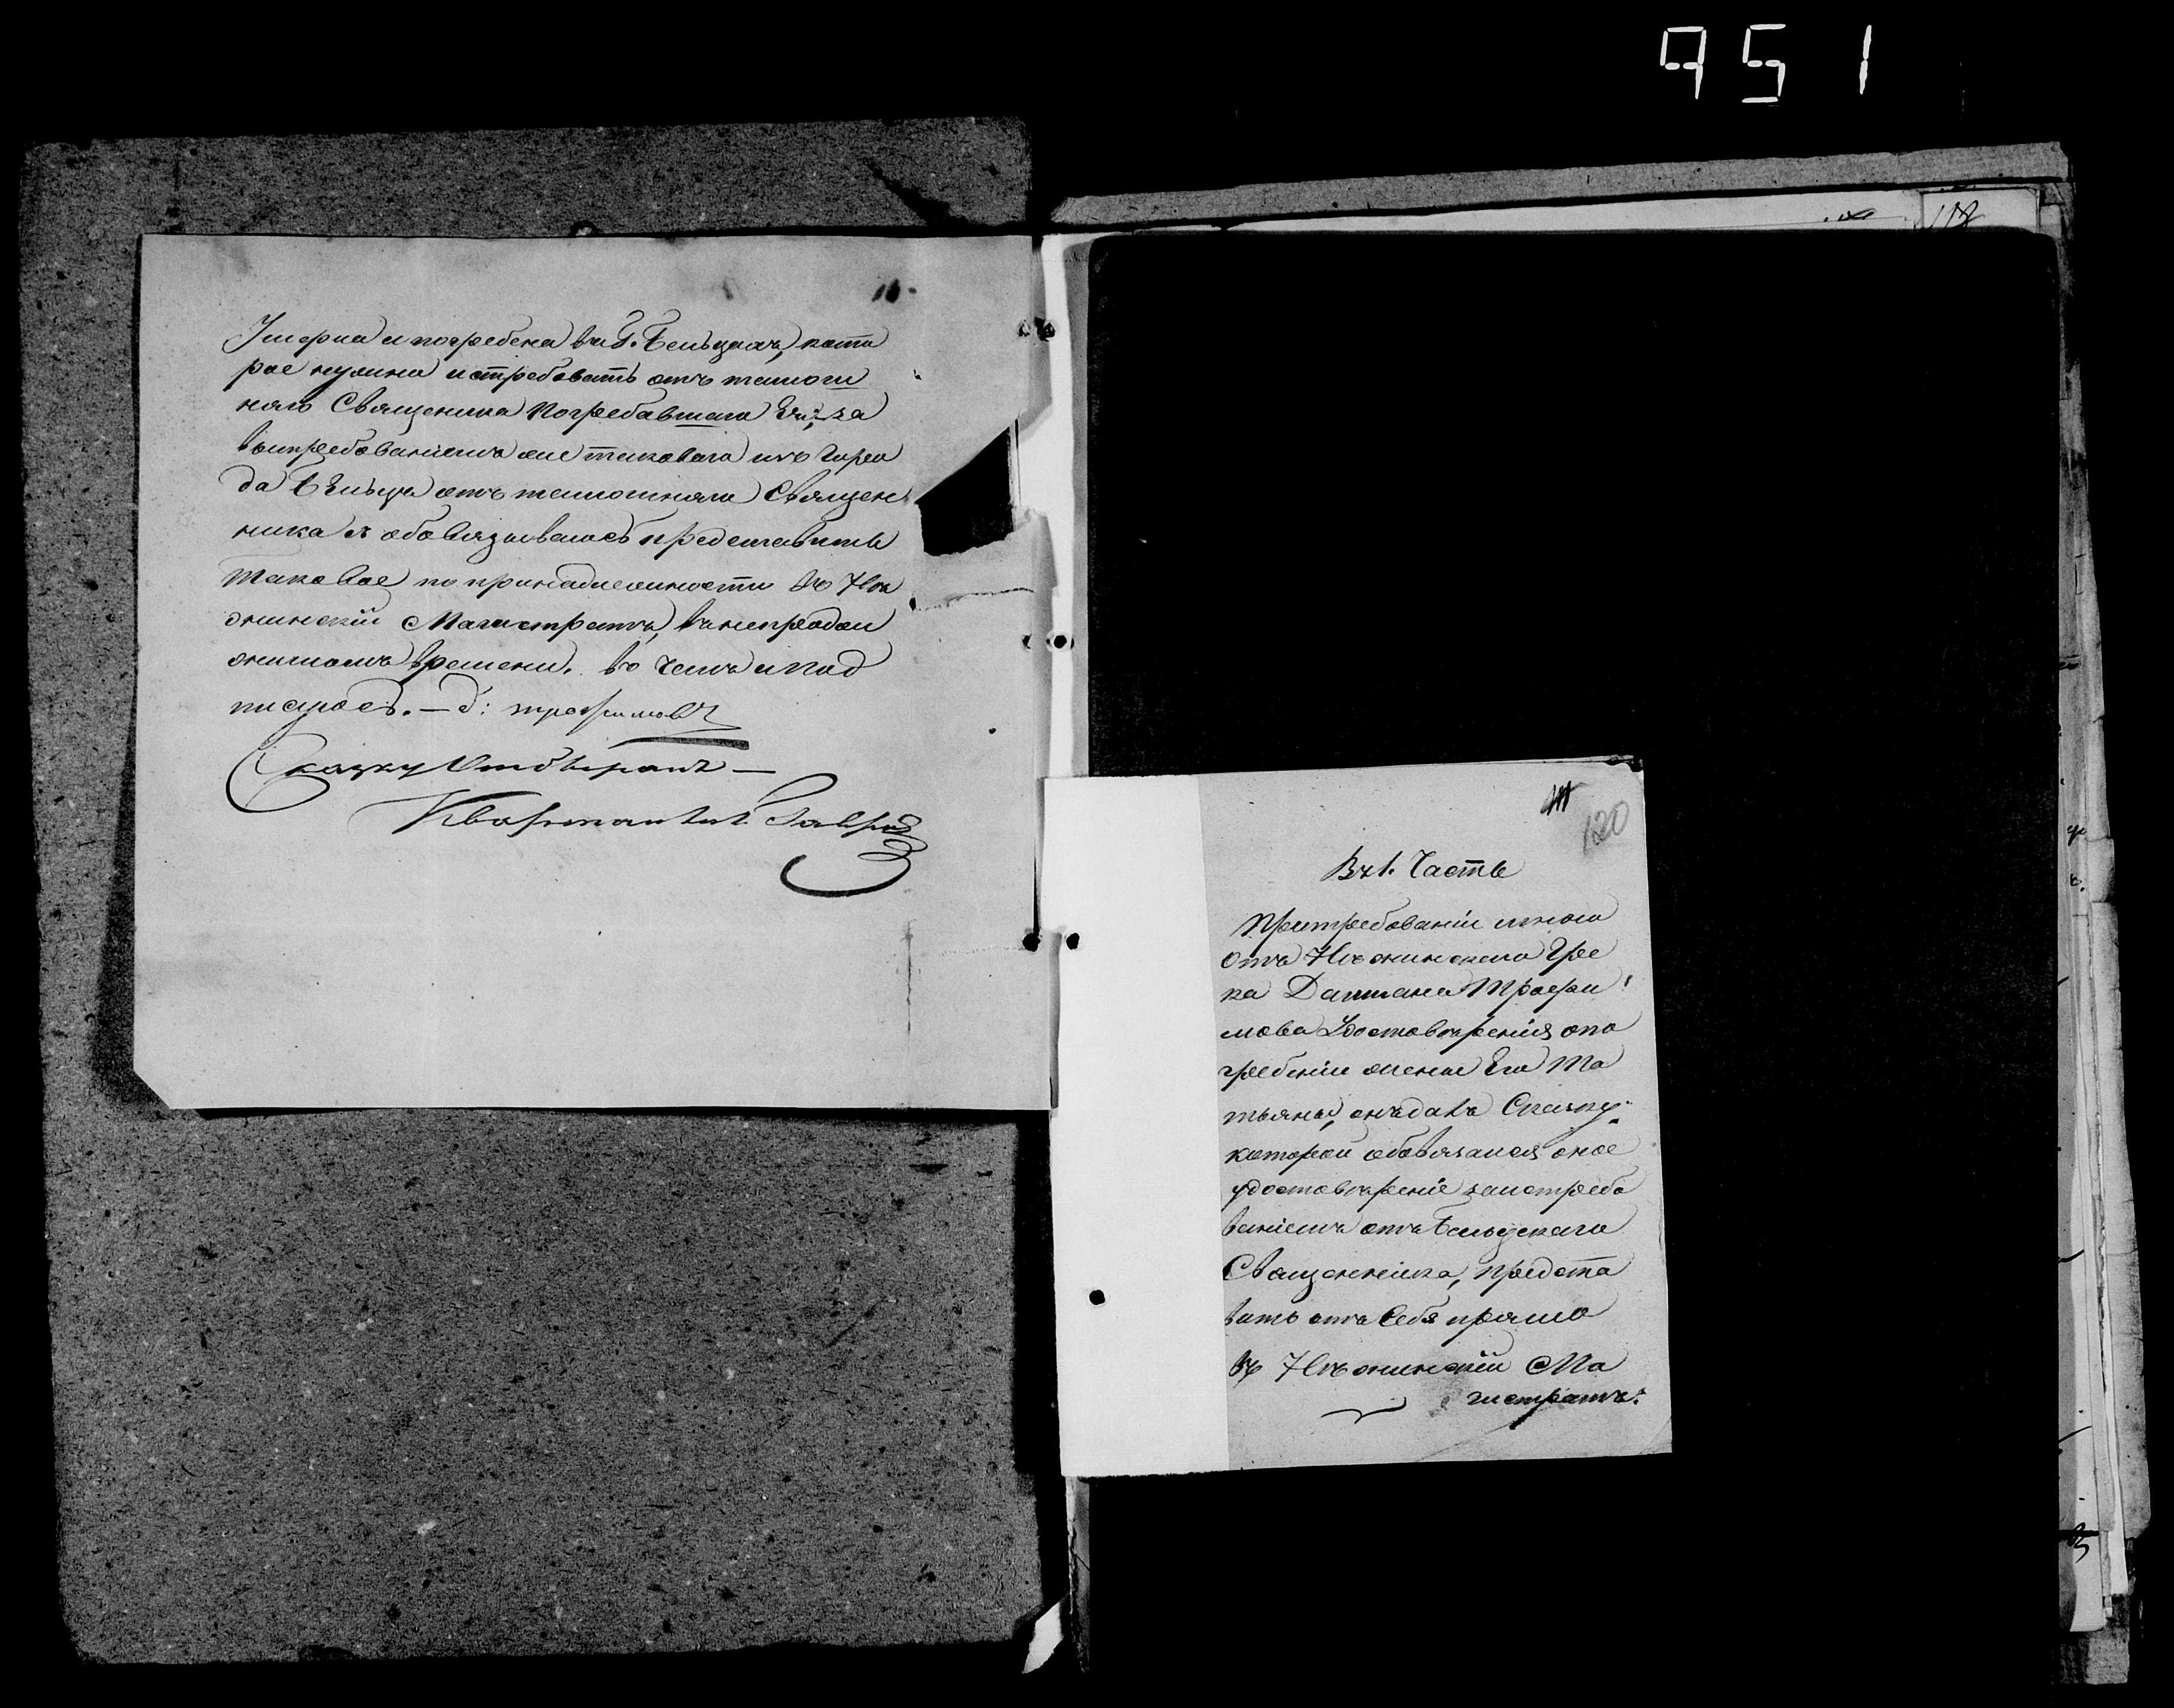 951
118
Умерла и погребена въ Г. Бельцахъ, кото
рое нужно истребовать отъ тамош
няго Священика погребавшаго Её; за
вытребованіемъ же таковаго изъ горо
да Бельца отъ тамошняго Священ
ника я обовязываюсь представить
таковое по принадлежности въ Не
жинскій Магистратъ, въ непродол
жительномъ времени. въ чемъ и под
писуюсь. — Д: трофимовъ
Сказку Отобралъ —
Квартальный
120
Въ 1. Часть
При требованіи мною
отъ Нѣжинскаго Гре
ка Даміана Трофи
мова Удостовѣренія о по
гребеніи жены Его Та
тьяны, онъ далъ Сказку
которой обовязался оное
удостовѣреніе за истребо
ваніемъ отъ Бельцскаго
Священника, предста
вить отъ Себя прямо
въ Нѣжинскій Ма
гистратъ.